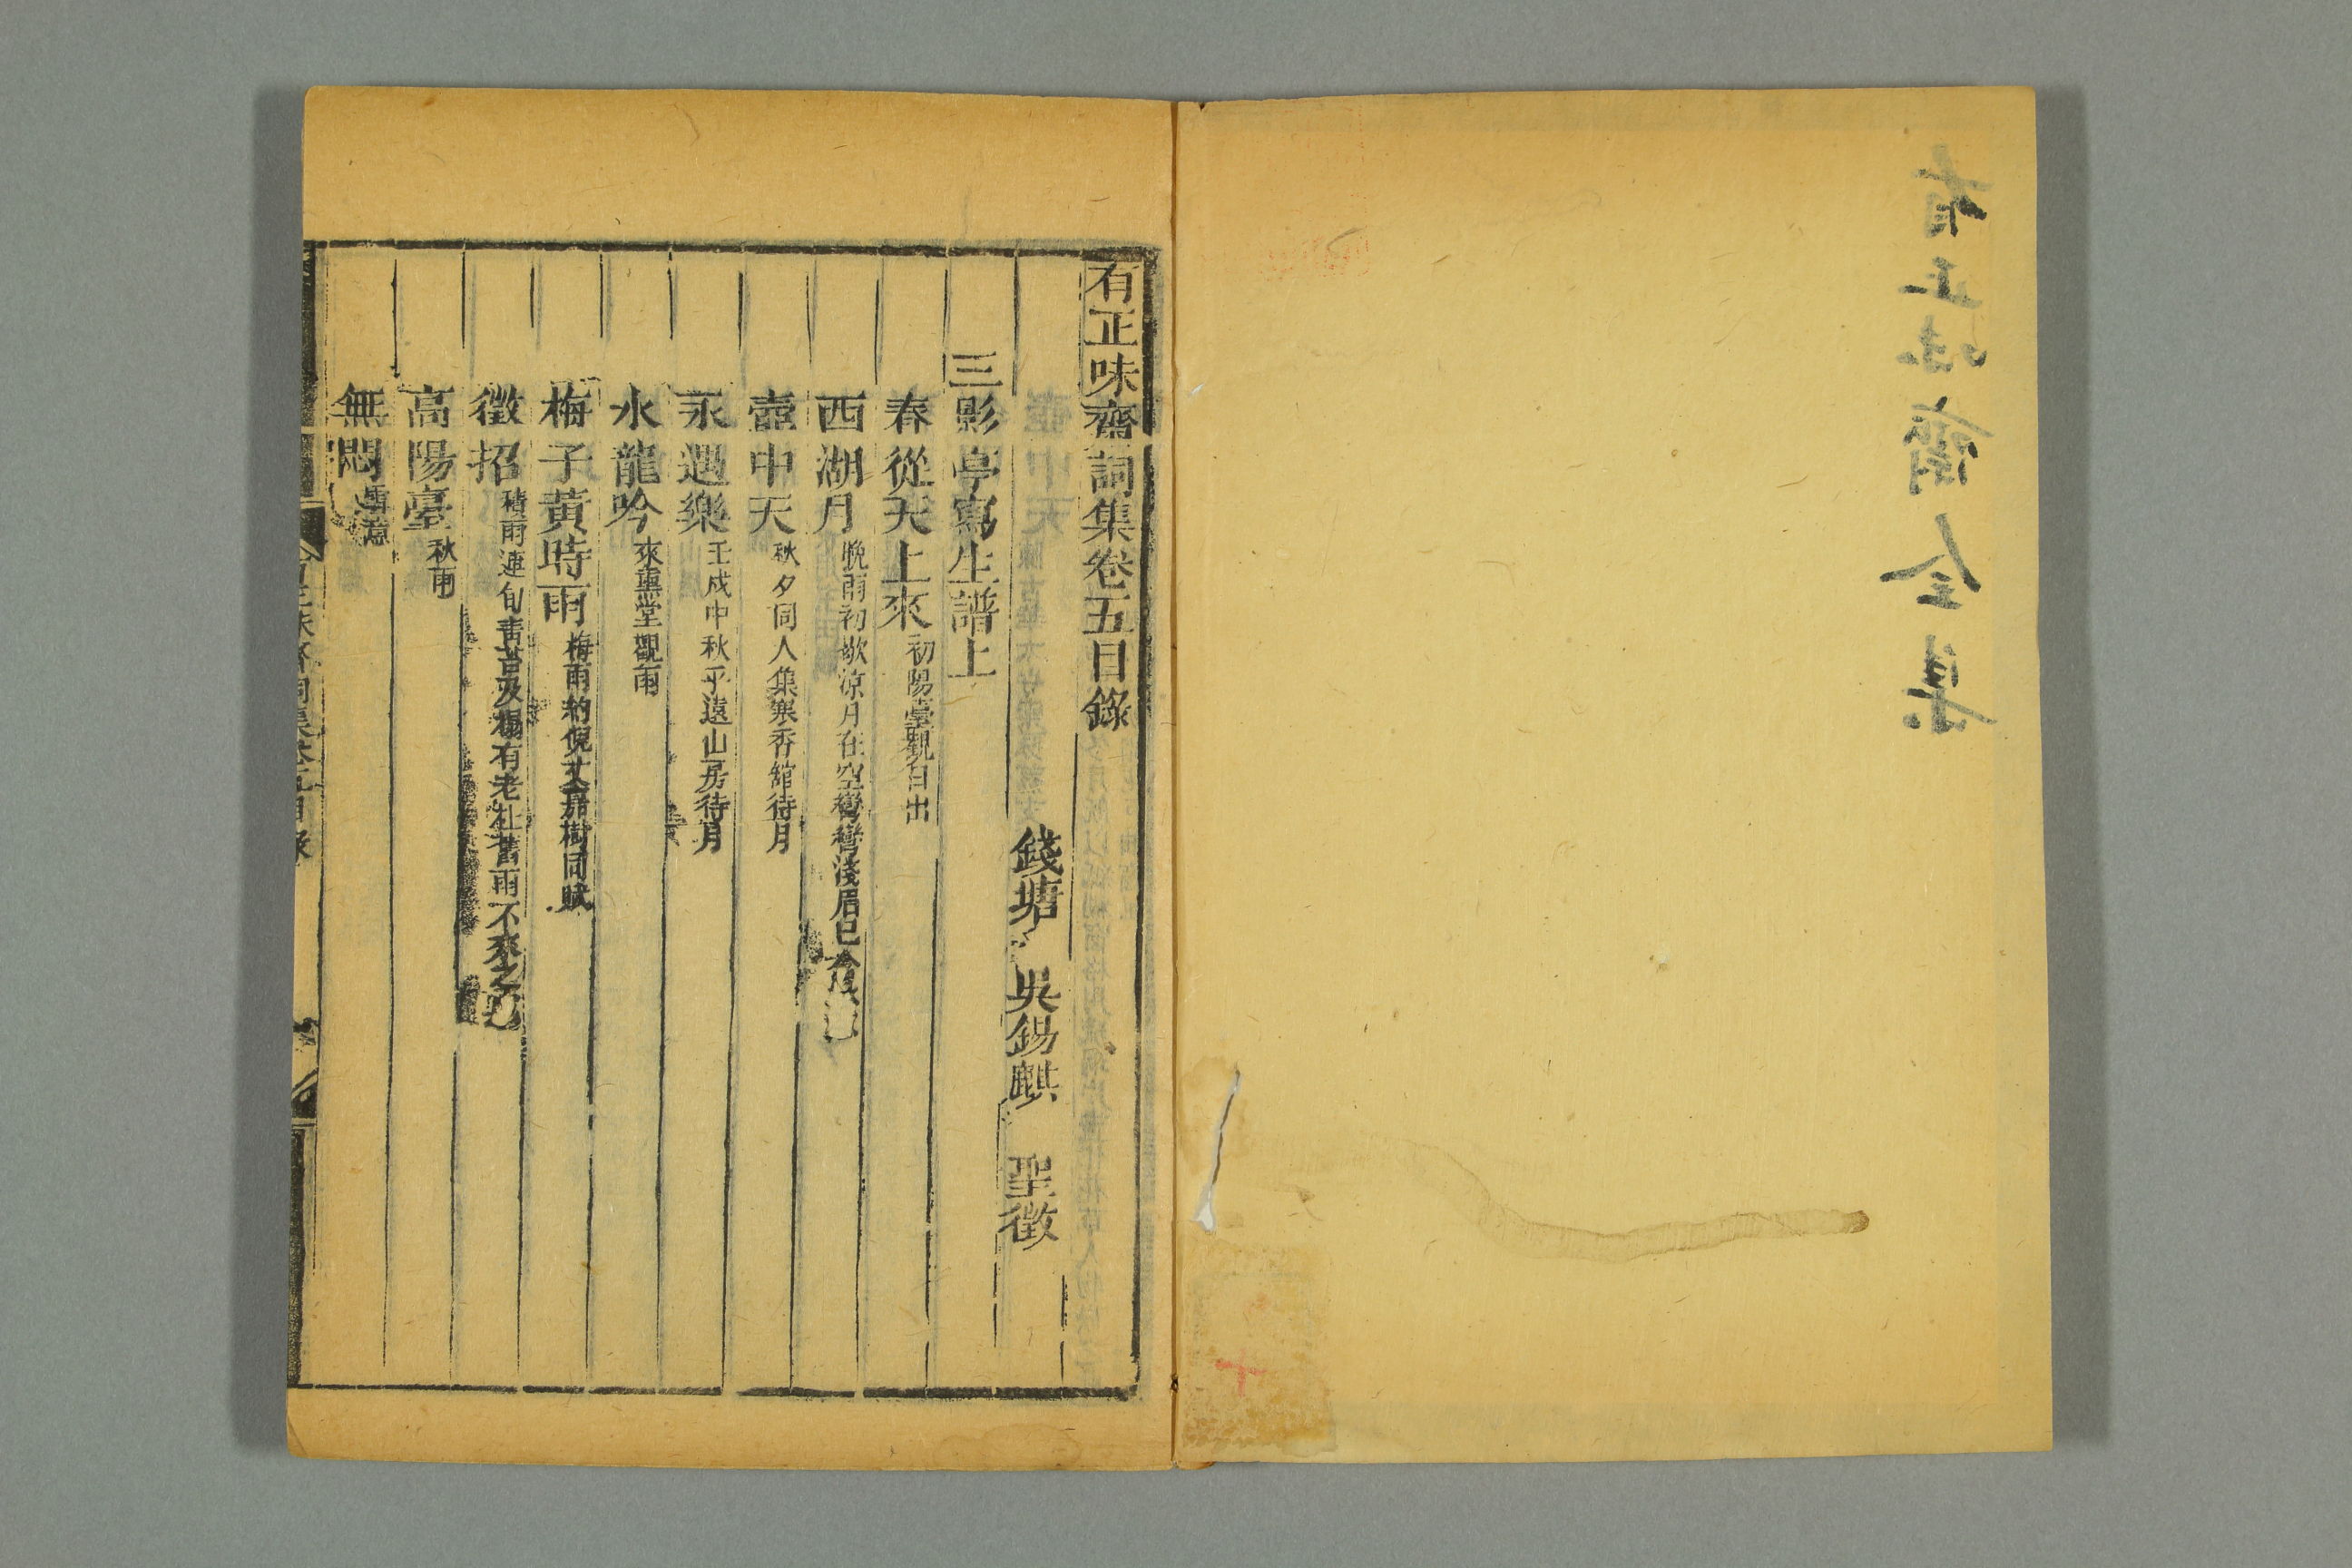 有正味齋全集
有正味齋詞集卷五目錄
錢塘 吳錫麒 聖徵
三影亭寫生譜上
春從天上來 初陽臺觀日出
西湖月 晚雨初歇涼月在空彎彎淺眉已
壺中天 秋夕同人集寒香館待月
永遇樂 壬戌中秋平遠山房待月
水龍吟 來薰堂觀雨
梅子黃時雨 梅雨約倪丈嘉樹同賦
徵招 積雨連旬靑苔及榻有老杜舊雨不來之
高陽臺 秋雨
無悶 雪意